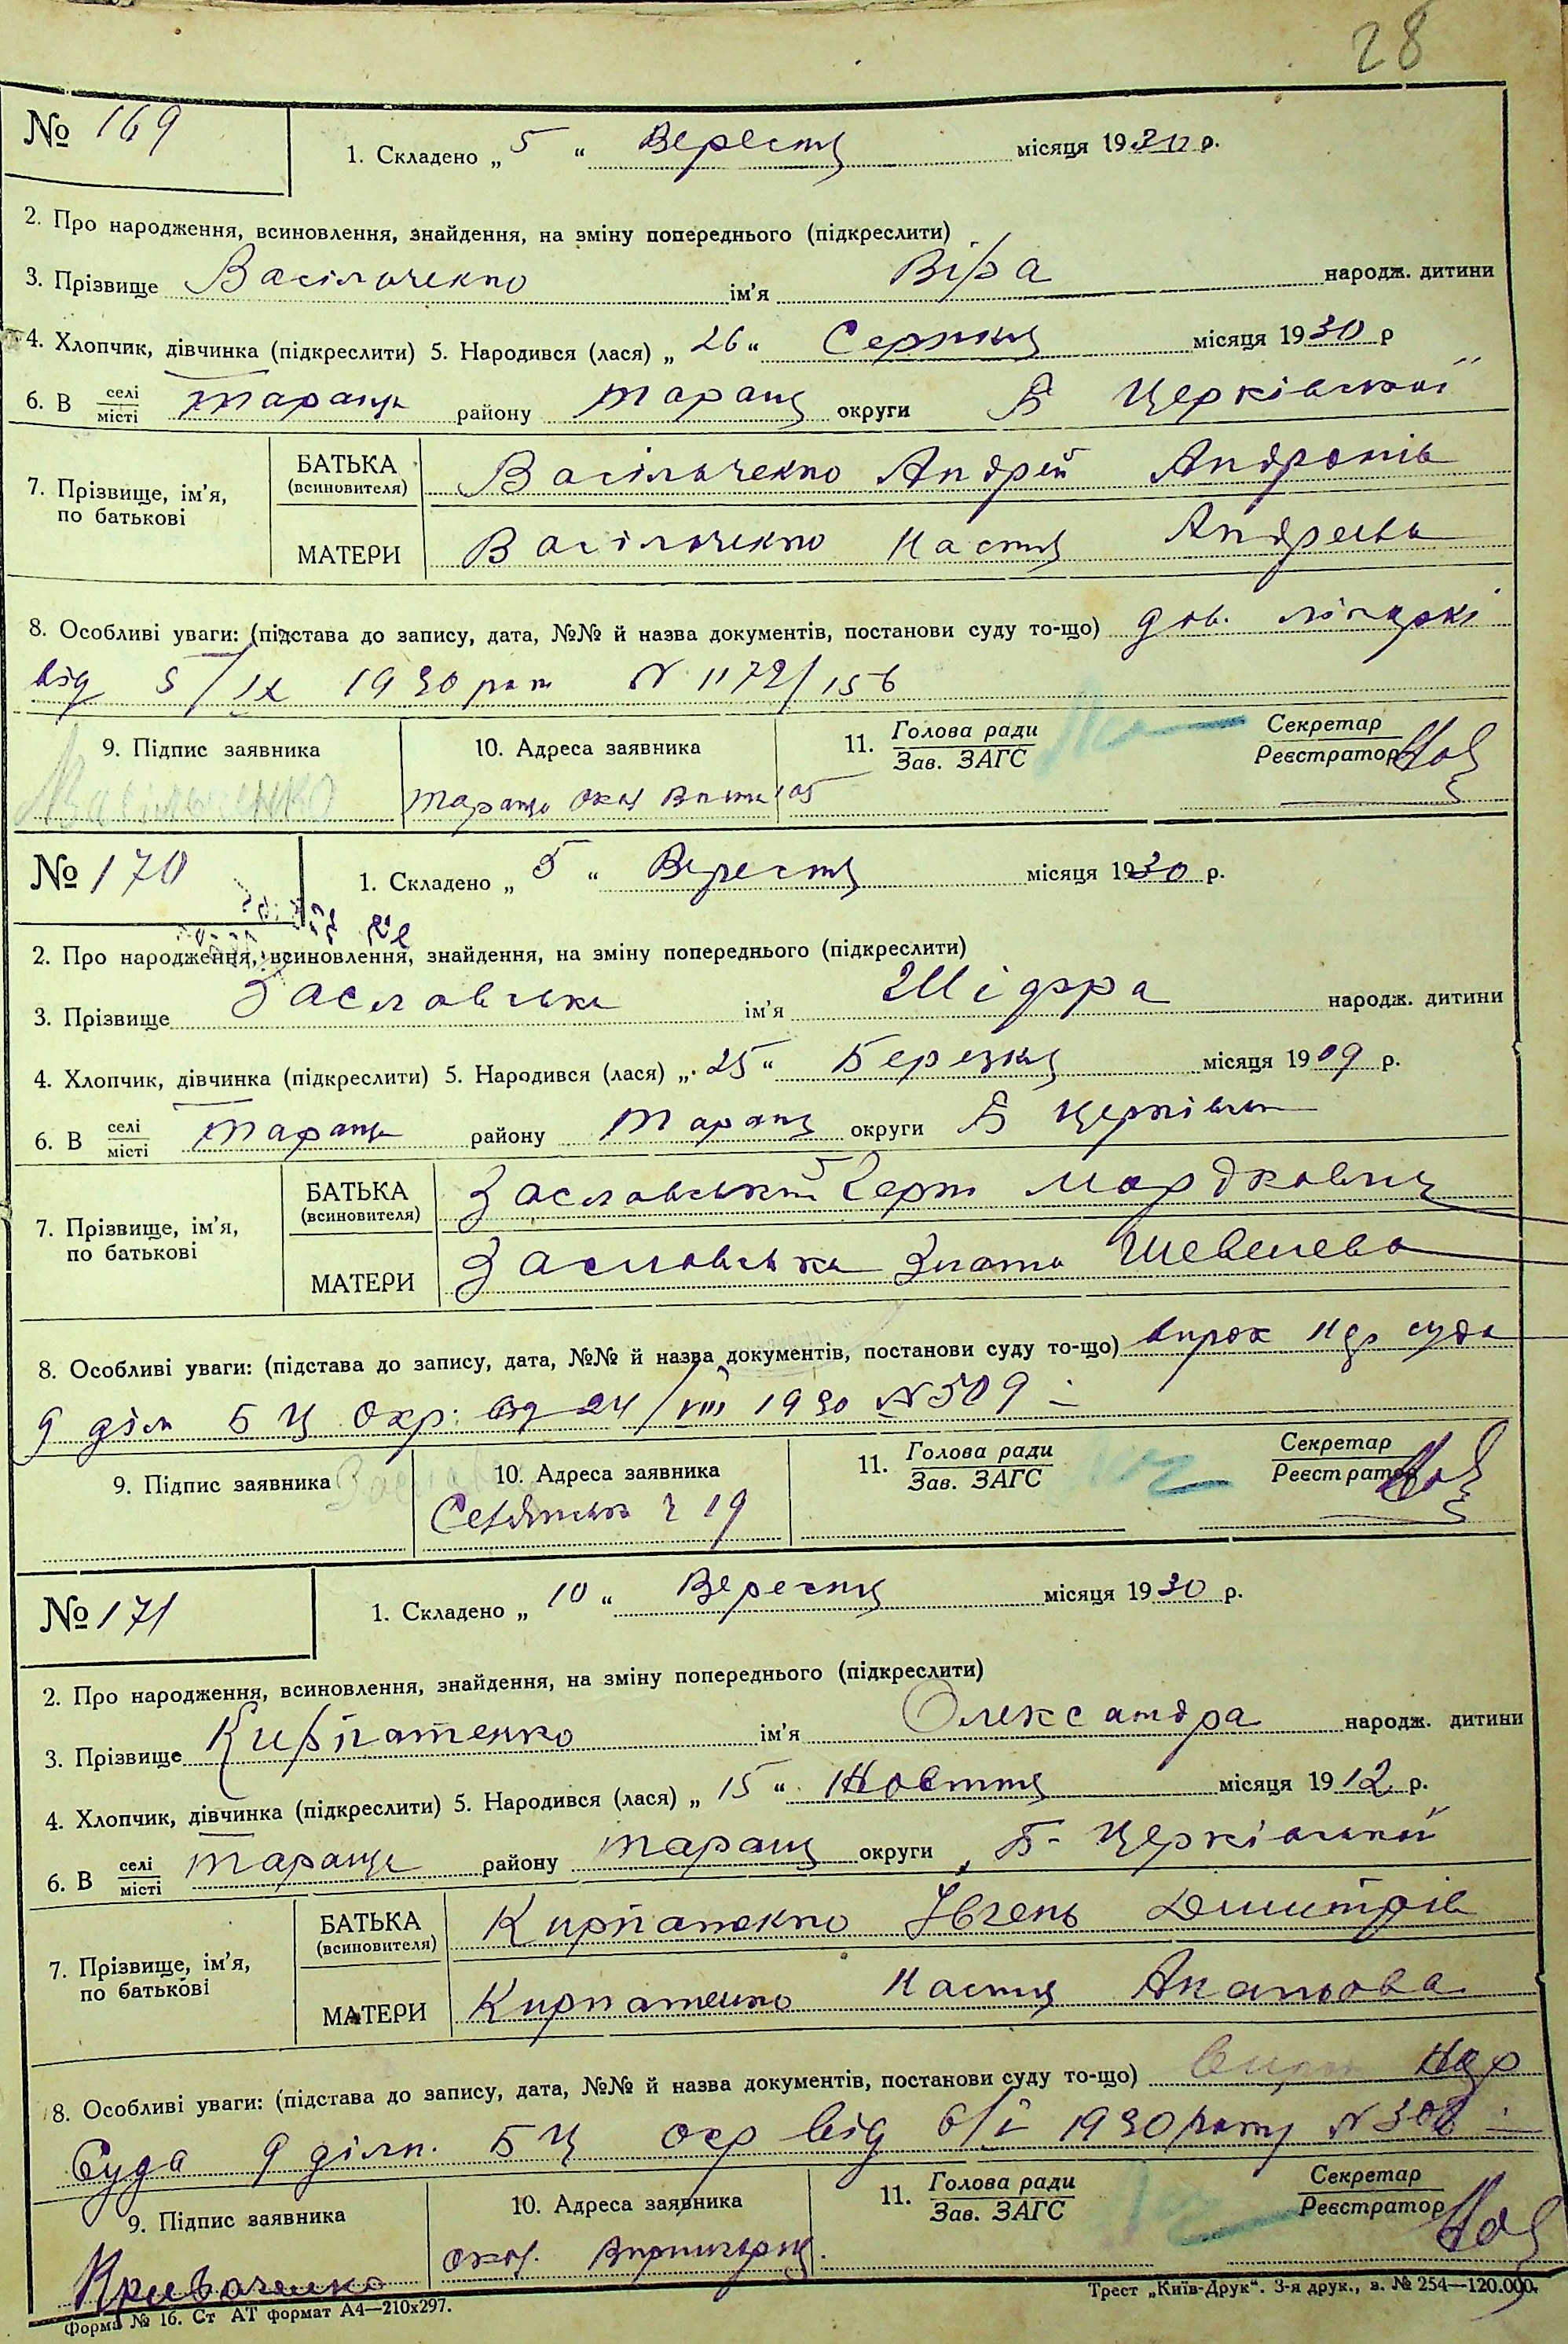 28
№ 169
1. Складено „ 5 “ Вересня місяця 1930 р.
2. Про народження, всиновлення, знайдення, на зміну попереднього (підкреслити)
3. Прізвище Васільченко ім'я Віра народж. дитини
4. Хлопчик, дівчинка (підкреслити) 5. Народився (лася) „ 26 “ Серпня місяця 1930 р
6. В селі/місті Тараща району Таращ округи Б Церківської
7. Прізвище, ім'я, по батькові
БАТЬКА (всиновителя) Васільченко Андрей Андронів
МАТЕРИ Васільченко Настя Андреева
8. Особливі уваги: (підстава до запису, дата, №№ й назва документів, постанови суду то-що) дов. лікарні
від 5/IX 1930 рок N 1172/156
9. Підпис заявника Васільченко
10. Адреса заявника Тараща окол
11. Голова ради Зав. ЗАГС
Секретар Реєстратор
№ 170
1. Складено „ 5 “ Вересня місяця 1930 р.
2. Про народження, всиновлення, знайдення, на зміну попереднього (підкреслити)
3. Прізвище Заславська ім'я Шіфра народж. дитини
4. Хлопчик, дівчинка (підкреслити) 5. Народився (лася) „ 25 “ Березня місяця 1909 р.
6. В селі/місті Тараща району Таращ округи Б Церківськ
7. Прізвище, ім'я, по батькові
БАТЬКА (всиновителя) Заславський Герш Мордкович
МАТЕРИ Заславська Злата Шевелева
8. Особливі уваги: (підстава до запису, дата, №№ й назва документів, постанови суду то-що) вирок Нар суда
9 діл Б Ц Окр. від 24/VIII 1930 N 509
9. Підпис заявника
10. Адреса заявника 19
11. Голова ради Зав. ЗАГС
Секретар Реєстратор
№ 171
1. Складено „ 10 “ Вересня місяця 1930 р.
2. Про народження, всиновлення, знайдення, на зміну попереднього (підкреслити)
3. Прізвище Кирпатенко ім'я Олександра народж. дитини
4. Хлопчик, дівчинка (підкреслити) 5. Народився (лася) „ 15 “ Жовтня місяця 1912 р.
6. В селі/місті Тараща району Таращ округи Б- Церківської
7. Прізвище, ім'я, по батькові
БАТЬКА (всиновителя) Кирпатенко Івген Дмитрів
МАТЕРИ Кирпатенко Настя
8. Особливі уваги: (підстава до запису, дата, №№ й назва документів, постанови суду то-що) Вирок Нар
Суда 9 дільн. Б Ц окр від 1930 року N
9. Підпис заявника
10. Адреса заявника окол.
11. Голова ради Зав. ЗАГС
Секретар Реєстратор
Форма № 16. Ст АТ формат А4—210х297.
Трест „Київ-Друк“. 3-я друк., з. № 254—120.000.